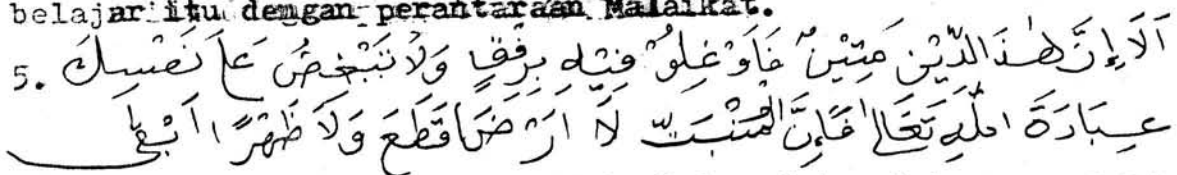 belajar itu dengan perantaraan Malaikat.
5. اَلَا إِنَّ هٰذَا الدِّيْنَ مَتِيْنٌ فَاَوْغِلُوْ فِيْهِ بِرِفْقٍ وَلَا تَبْغَضُ عَلَى نَفْسِكَ
عِبَادَةَ اللّٰهِ تَعَالَى فَإِنَّ الْمُنْبَتَّ لَا اَرْضًا قَطَعَ وَلَا ظَهْرًا اَبْقَى